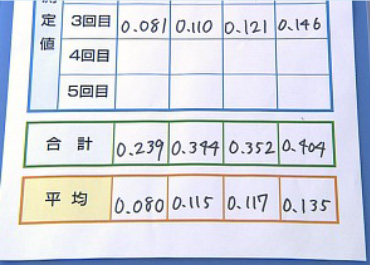 定
値
3回目 0.081 0.110 0.121 0.146
4回目
5回目
合計 0.239 0.344 0.352 0.404
平均 0.080 0.115 0.117 0.135